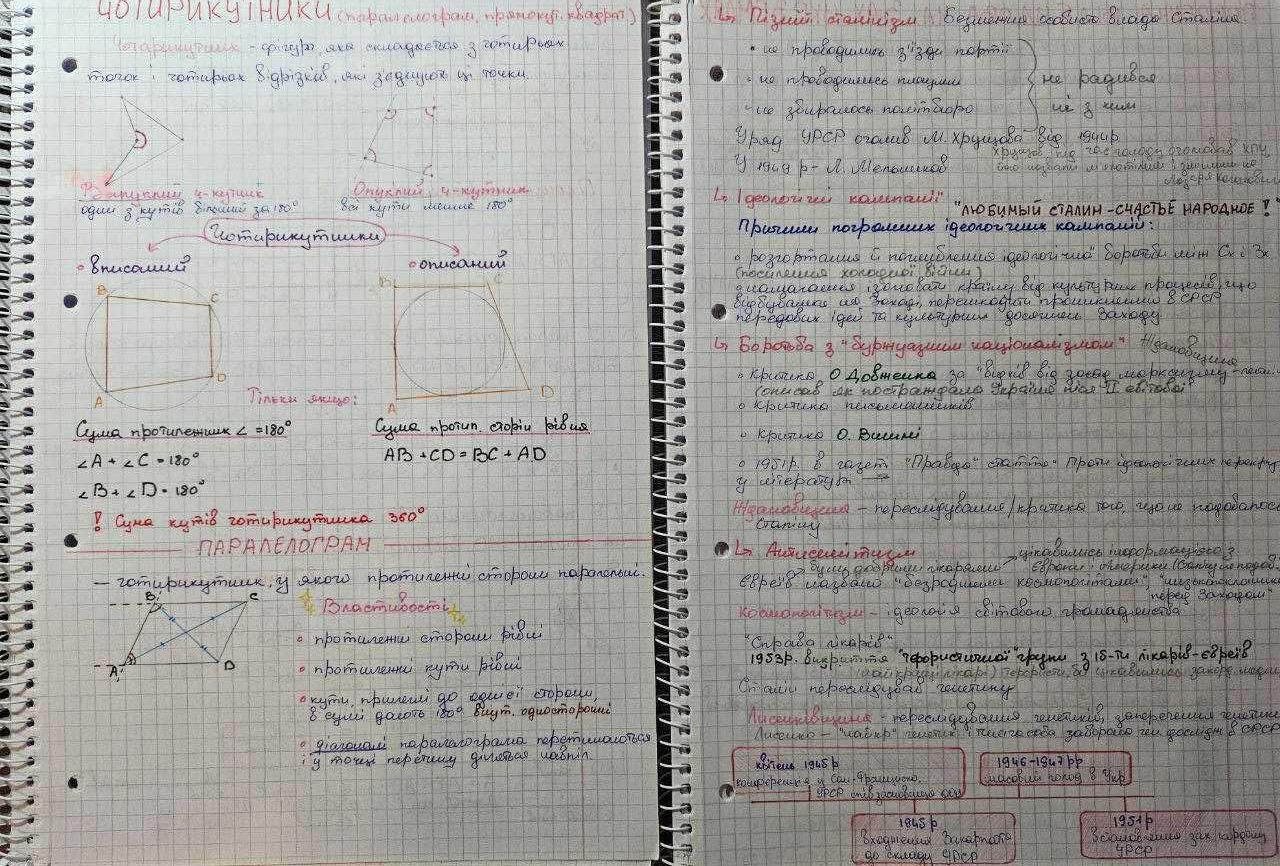 ЧОТИРИКУТНИКИ (паралелограм, прямокут, квадрат)
Чотирикутник - фігура, яка складається з чотирьох
точок і чотирьох відрізків, які з'єднують ці точки.
4-кутник
один з кутів більший за 180°
Опуклий 4-кутник
всі кути менше 180°
Чотирикутники
вписаний
описаний
B
C
A
D
B
C
A
D
Тільки якщо:
Сума протилежних ∠ = 180°
∠A + ∠C = 180°
∠B + ∠D = 180°
Сума протил. сторін рівна
AB + CD = BC + AD
! Сума кутів чотирикутника 360°
ПАРАЛЕЛОГРАМ
— чотирикутник, у якого протилежні сторони паралельні.
B
C
A
D
Властивості
протилежні сторони рівні
протилежні кути рівні
кути, прилеглі до однієї сторони,
в сумі дають 180° внут. односторонні
діагоналі паралелограма перетинаються
і у точці перетину діляться навпіл.
Пізній сталінізм Безмежна особиста влада Сталіна
не проводились з'їзди партії
не проводились пленуми
не збиралось політбюро
не радився
ні з ким
Уряд УРСР очолив М. Хрущова від 1944р
У 1949 р - Л. Мельников
Ідеологічні кампанії
"ЛЮБИМЫЙ СТАЛИН - СЧАСТЬЕ НАРОДНОЕ!"
Причини погромних ідеологічних кампаній:
розгортання й поглиблення ідеологічної боротьби між Сх і Зх
(посилення холодної війни)
намагання ізолювати країну від культурних процесів, що
відбувались на Заході, перешкодити проникненню в СРСР
передових ідей та культурних досягнень Заходу
Боротьба з "буржуазним націоналізмом" Ждановщина
Критика О Довженка за "відхід від засад марксизму-
(описав як постраждала Україна після II світової
Критика письменників
Критика О. Вишні
1951р. в газеті "Правда" стаття - Проти ідеологічних перекру
у літературі
Ждановщина - переслідування/критика того, що не подобалось
Сталіну
Антисемітизм
були добрими лікарями
цікавились інформацією з
Європи і
Євреїв назвали "безродними космополітами"
перед Заходом"
космополітизм - ідеологія світового громадянства
"Справа лікарів"
1953р. викриття "терористичної" групи з 15-ти лікарів-євреїв
(найкращі лікарі)
Сталін переслідував генетику
Лисенківщина - переслідування генетиків, заперечення генетики
Лисенко -
квітень 1945р
конференція у Сан-Франциско.
УРСР співзасновниця ООН
1946-1947 рр
масовий голод в Укр
1845р
Входження Закарпаття
до складу УРСР
1951р
УРСР